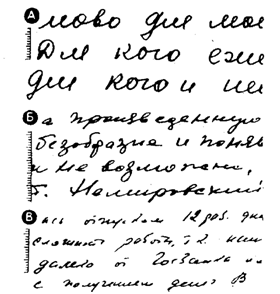 А
мово для мое
Для кого еже
для кого и не
Б
а произведенную
безобразие и поняв
и не возможен,
г. Немировский
В
ась отпуском 12 раб. дне
сложност работы, т.к. нам
далеко от Госбанка
с получением денег В